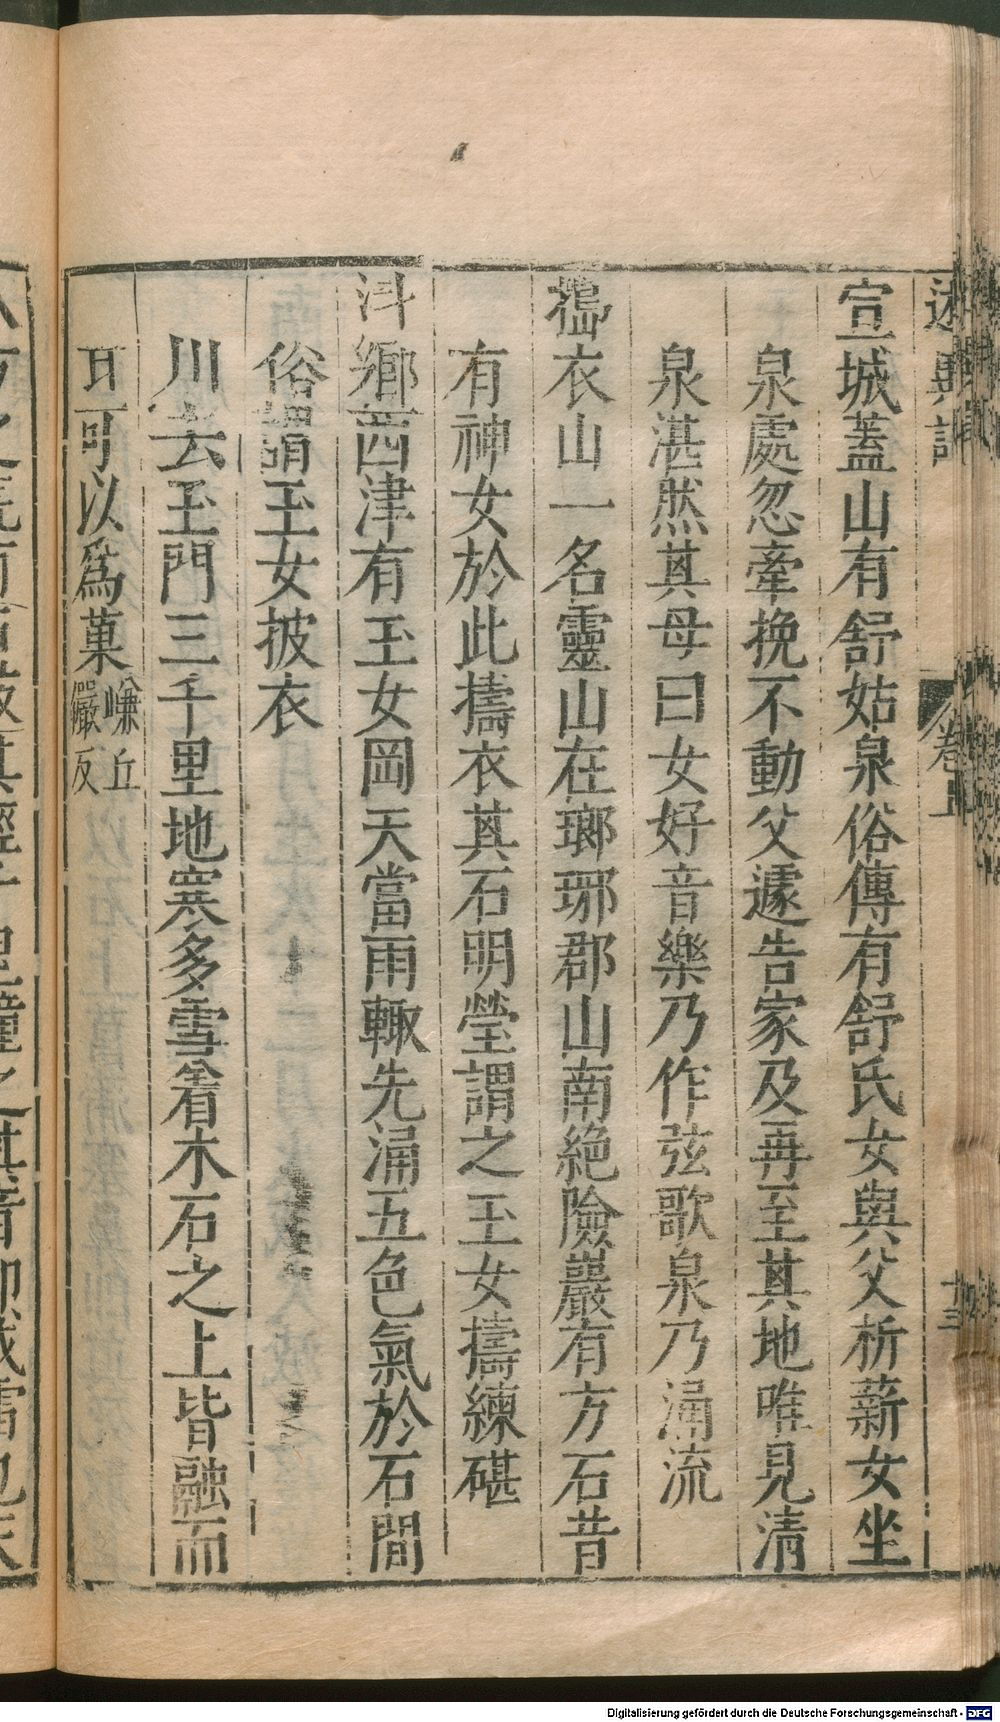 述異記 卷上 十三
宣城蓋山有舒姑泉俗傳有舒氏女與父析薪女坐
泉處忽牽挽不動父遽告家及再至其地唯見清
泉湛然其母曰女好音樂乃作弦歌泉乃涌流
擣衣山一名靈山在瑯琊郡山南絕險巖有方石昔
有神女於此擣衣其石明瑩謂之玉女擣練碪
鄉西津有玉女岡天當雨輙先涌五色氣於石間
俗謂玉女披衣
川去玉門三千里地寒多雪着木石之上皆融而
甘可以爲菓
嵰丘
儼反
Digitalisierung gefördert durch die Deutsche Forschungsgemeinschaft - DFG